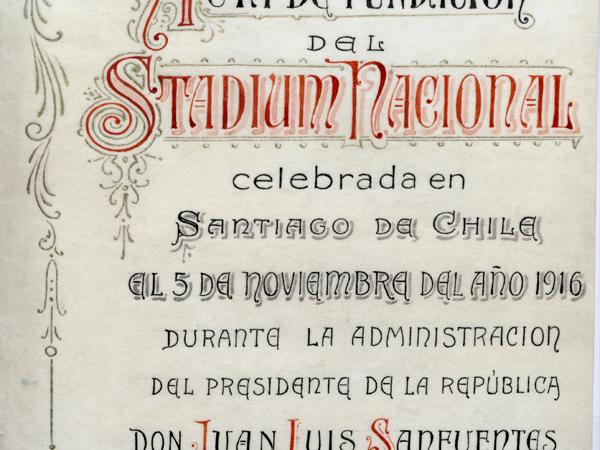 DE FUNDACION
DEL
STADIUM NACIONAL
celebrada en
SANTIAGO DE CHILE
EL 5 DE NOVIEMBRE DEL AÑO 1916
DURANTE LA ADMINISTRACION
DEL PRESIDENTE DE LA REPÚBLICA
DON JUAN LUIS SANFUENTES